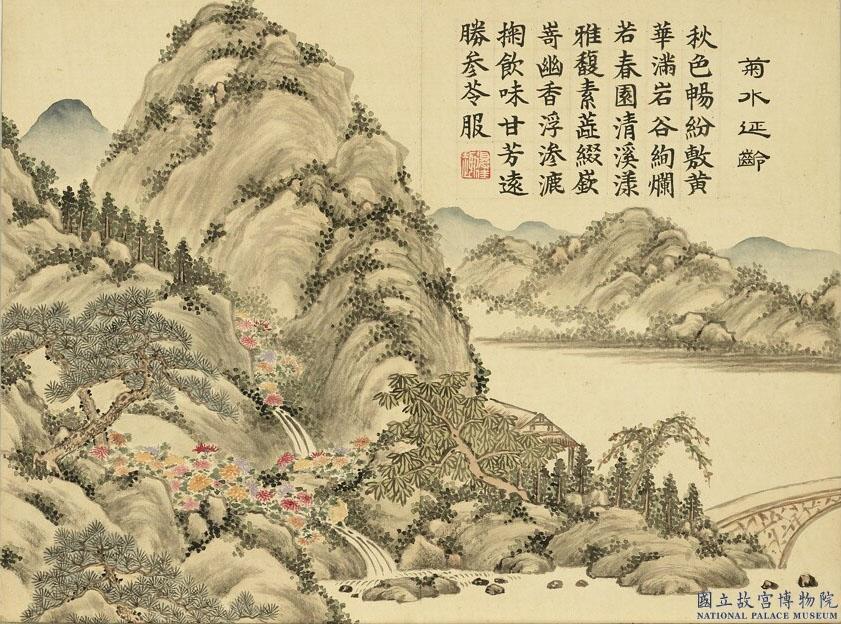 菊水延齡
秋色暢紛敷黄
華滿岩谷絢爛
若春園清溪漾
雅馥素蕋綴嶔
嵜幽香浮渗漉
掬飲味甘芳遠
勝参苓服
國立故宮博物院
NATIONAL PALACE MUSEUM